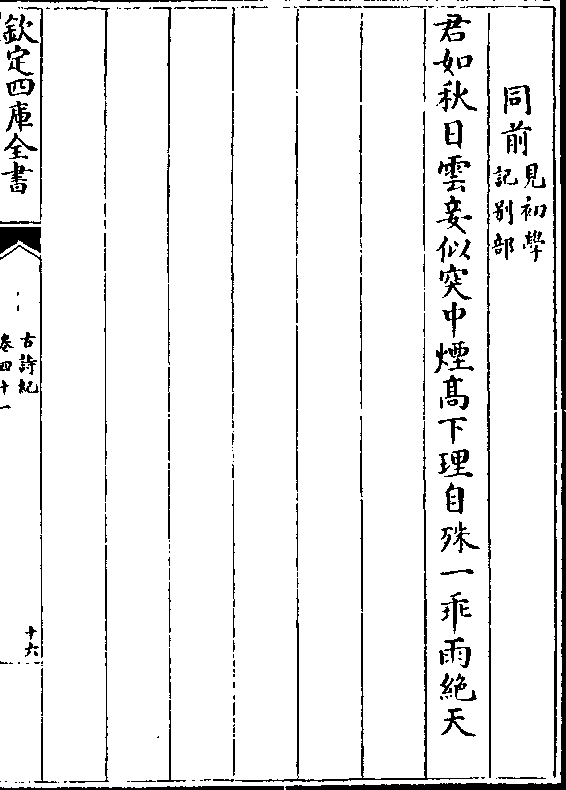 同前見初學
記別部
君如秋日雲妾似突中煙髙下理自殊一乖雨絶天
欽定四庫全書
古詩紀
卷四十一
十六